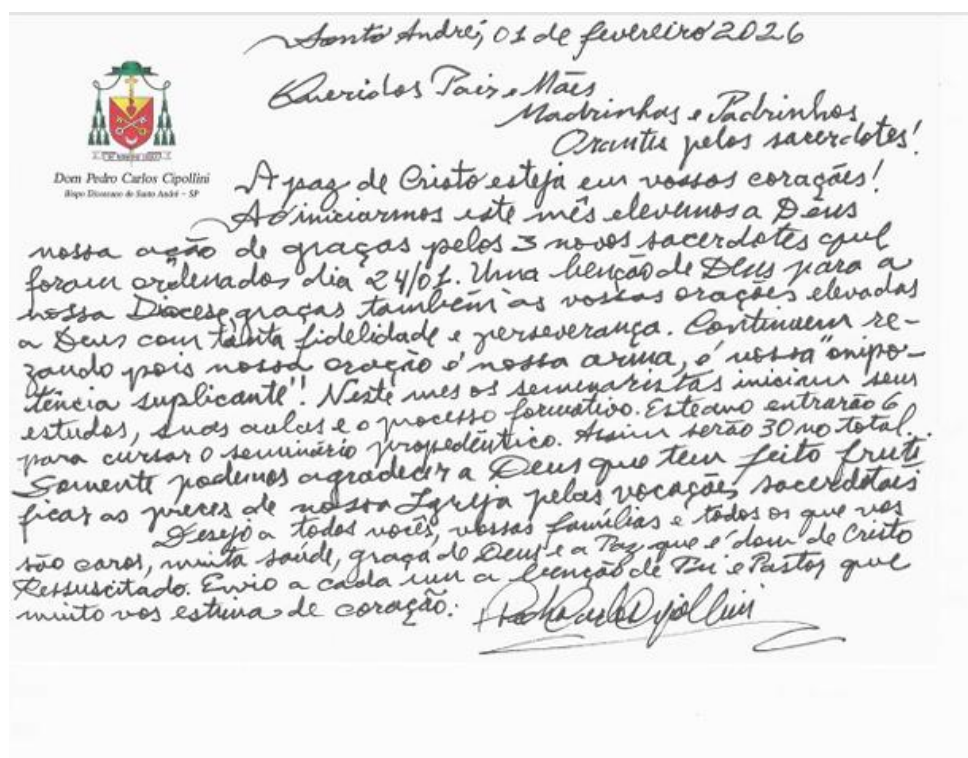 Santo André, 01 de fevereiro 2026
Queridos Pais e Mães
Madrinhas e Padrinhos
Orantes pelos sacerdotes!
Dom Pedro Carlos Cipollini
Bispo Diocesano de Santo André - SP
A paz de Cristo esteja em vossos corações!
Ao iniciarmos este mês elevemos a Deus
nossa ação de graças pelos 3 novos sacerdotes que
foram ordenados dia 24/01. Uma benção de Deus para a
nossa Diocese, graças também as vossas orações elevadas
a Deus com tanta fidelidade e perseverança. Continuem re-
zando pois nossa oração é nossa arma, é vossa "onipo-
tência suplicante"! Neste mes os seminaristas iniciam seus
estudos, suas aulas e o processo formativo. Este ano entrarão 6
para cursar o seminário propedêutico. Assim serão 30 no total.
Somente podemos agradecer a Deus que tem feito fruti
ficar as preces de nossa Igreja pelas vocações sacerdotais
Desejo a todos vocês, vossas famílias e todos os que vos
são caros, muita saúde, graça de Deus e a Paz que é dom de Cristo
Ressuscitado. Envio a cada um a benção de Pai e Pastor que
muito vos estima de coração.
Pedro Carlos Cipollini